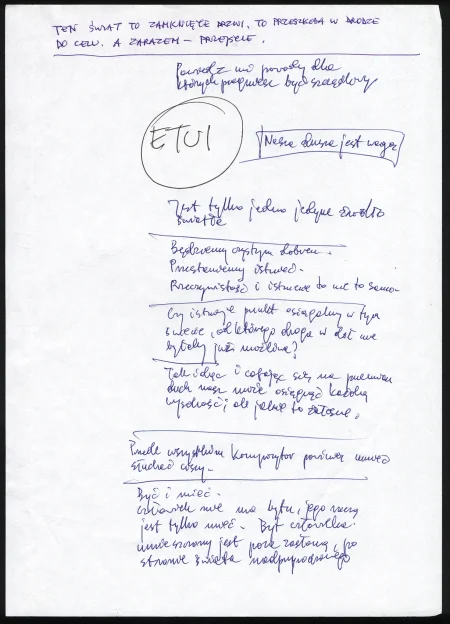 TEN ŚWIAT TO ZAMKNIĘTE DRZWI. TO PRZESZKODA W DRODZE
DO CELU. A ZARAZEM – PRZEJŚCIE.
Powiedz mi powody dla
których pragniesz być szczęśliwy
ETUI
Nasza dusza jest wagą
Jest tylko jedno jedyne źródło
światła
Będziemy czystym dobrem.
Przestaniemy istnieć.
Rzeczywistość i istnienie to nie to samo.
Czy istnieje punkt osiągalny w tym
świecie, od którego droga w dół nie
byłaby już możliwa?
Tak idąc i cofając się na przemian
duch nasz może osiągnąć każdą
wysokość; ale jakie to żałosne.
Przede wszystkim kompozytor powinien umieć
słuchać ciszy.
Być i mieć.
Człowiek nie ma bytu, jego rzeczą
jest tylko mieć. Byt człowieka
umieszczony jest poza zasłoną, po
stronie świata nadprzyrodzonego